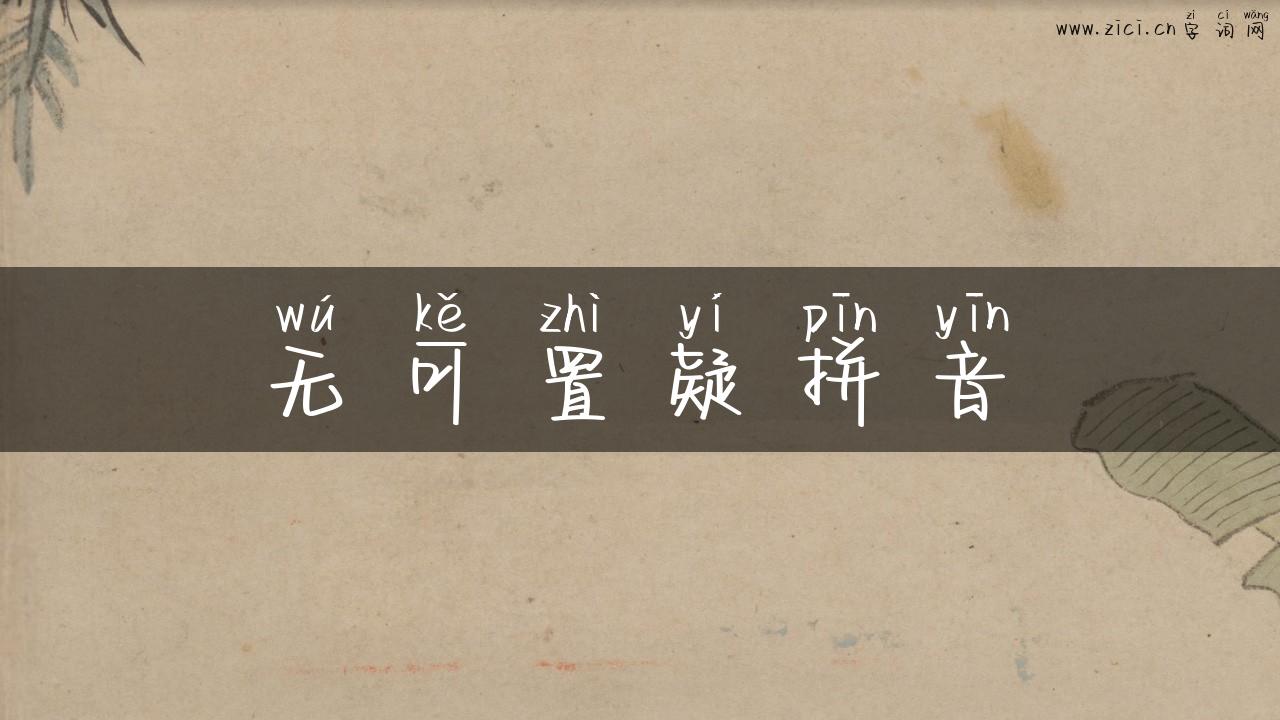 zì cí wǎng
www.zici.cn 字词网
wú kě zhì yí pīn yīn
无可置疑拼音